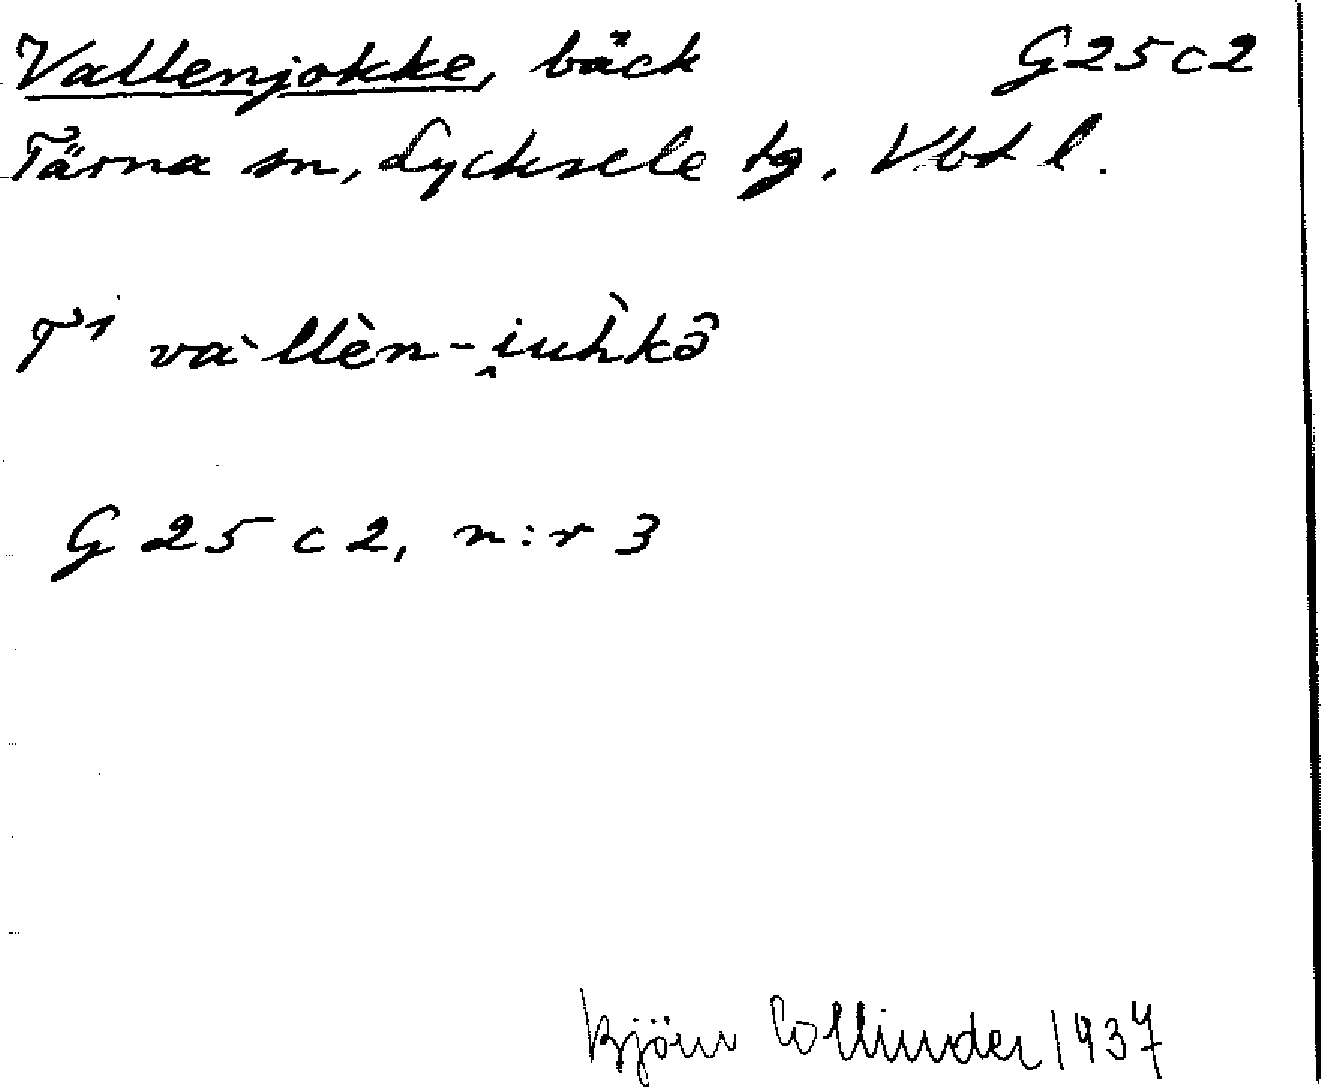 Vallenjokke, bäck G25c2
Tärna sn, Lycksele tg. Vbtl.
T1 va`llèn-i̭uh̀kô̂
G 25 c 2, n:r 3
Björn Collinder 1937